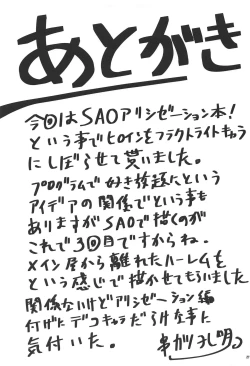 あとがき
今回はSAOアリシゼーション本!
という事でヒロインをフラクトライトキャラ
にしぼらせて貰いました。
プログラムで好き放題にという
アイデアの関係でという事も
ありますがSAOで描くのが
これで3回目ですからね。
メイン所から離れたハーレムを
という感じで描かせてもらいました
関係ないけどアリシゼーション編
デコキャラだらけな事に
気付いた。